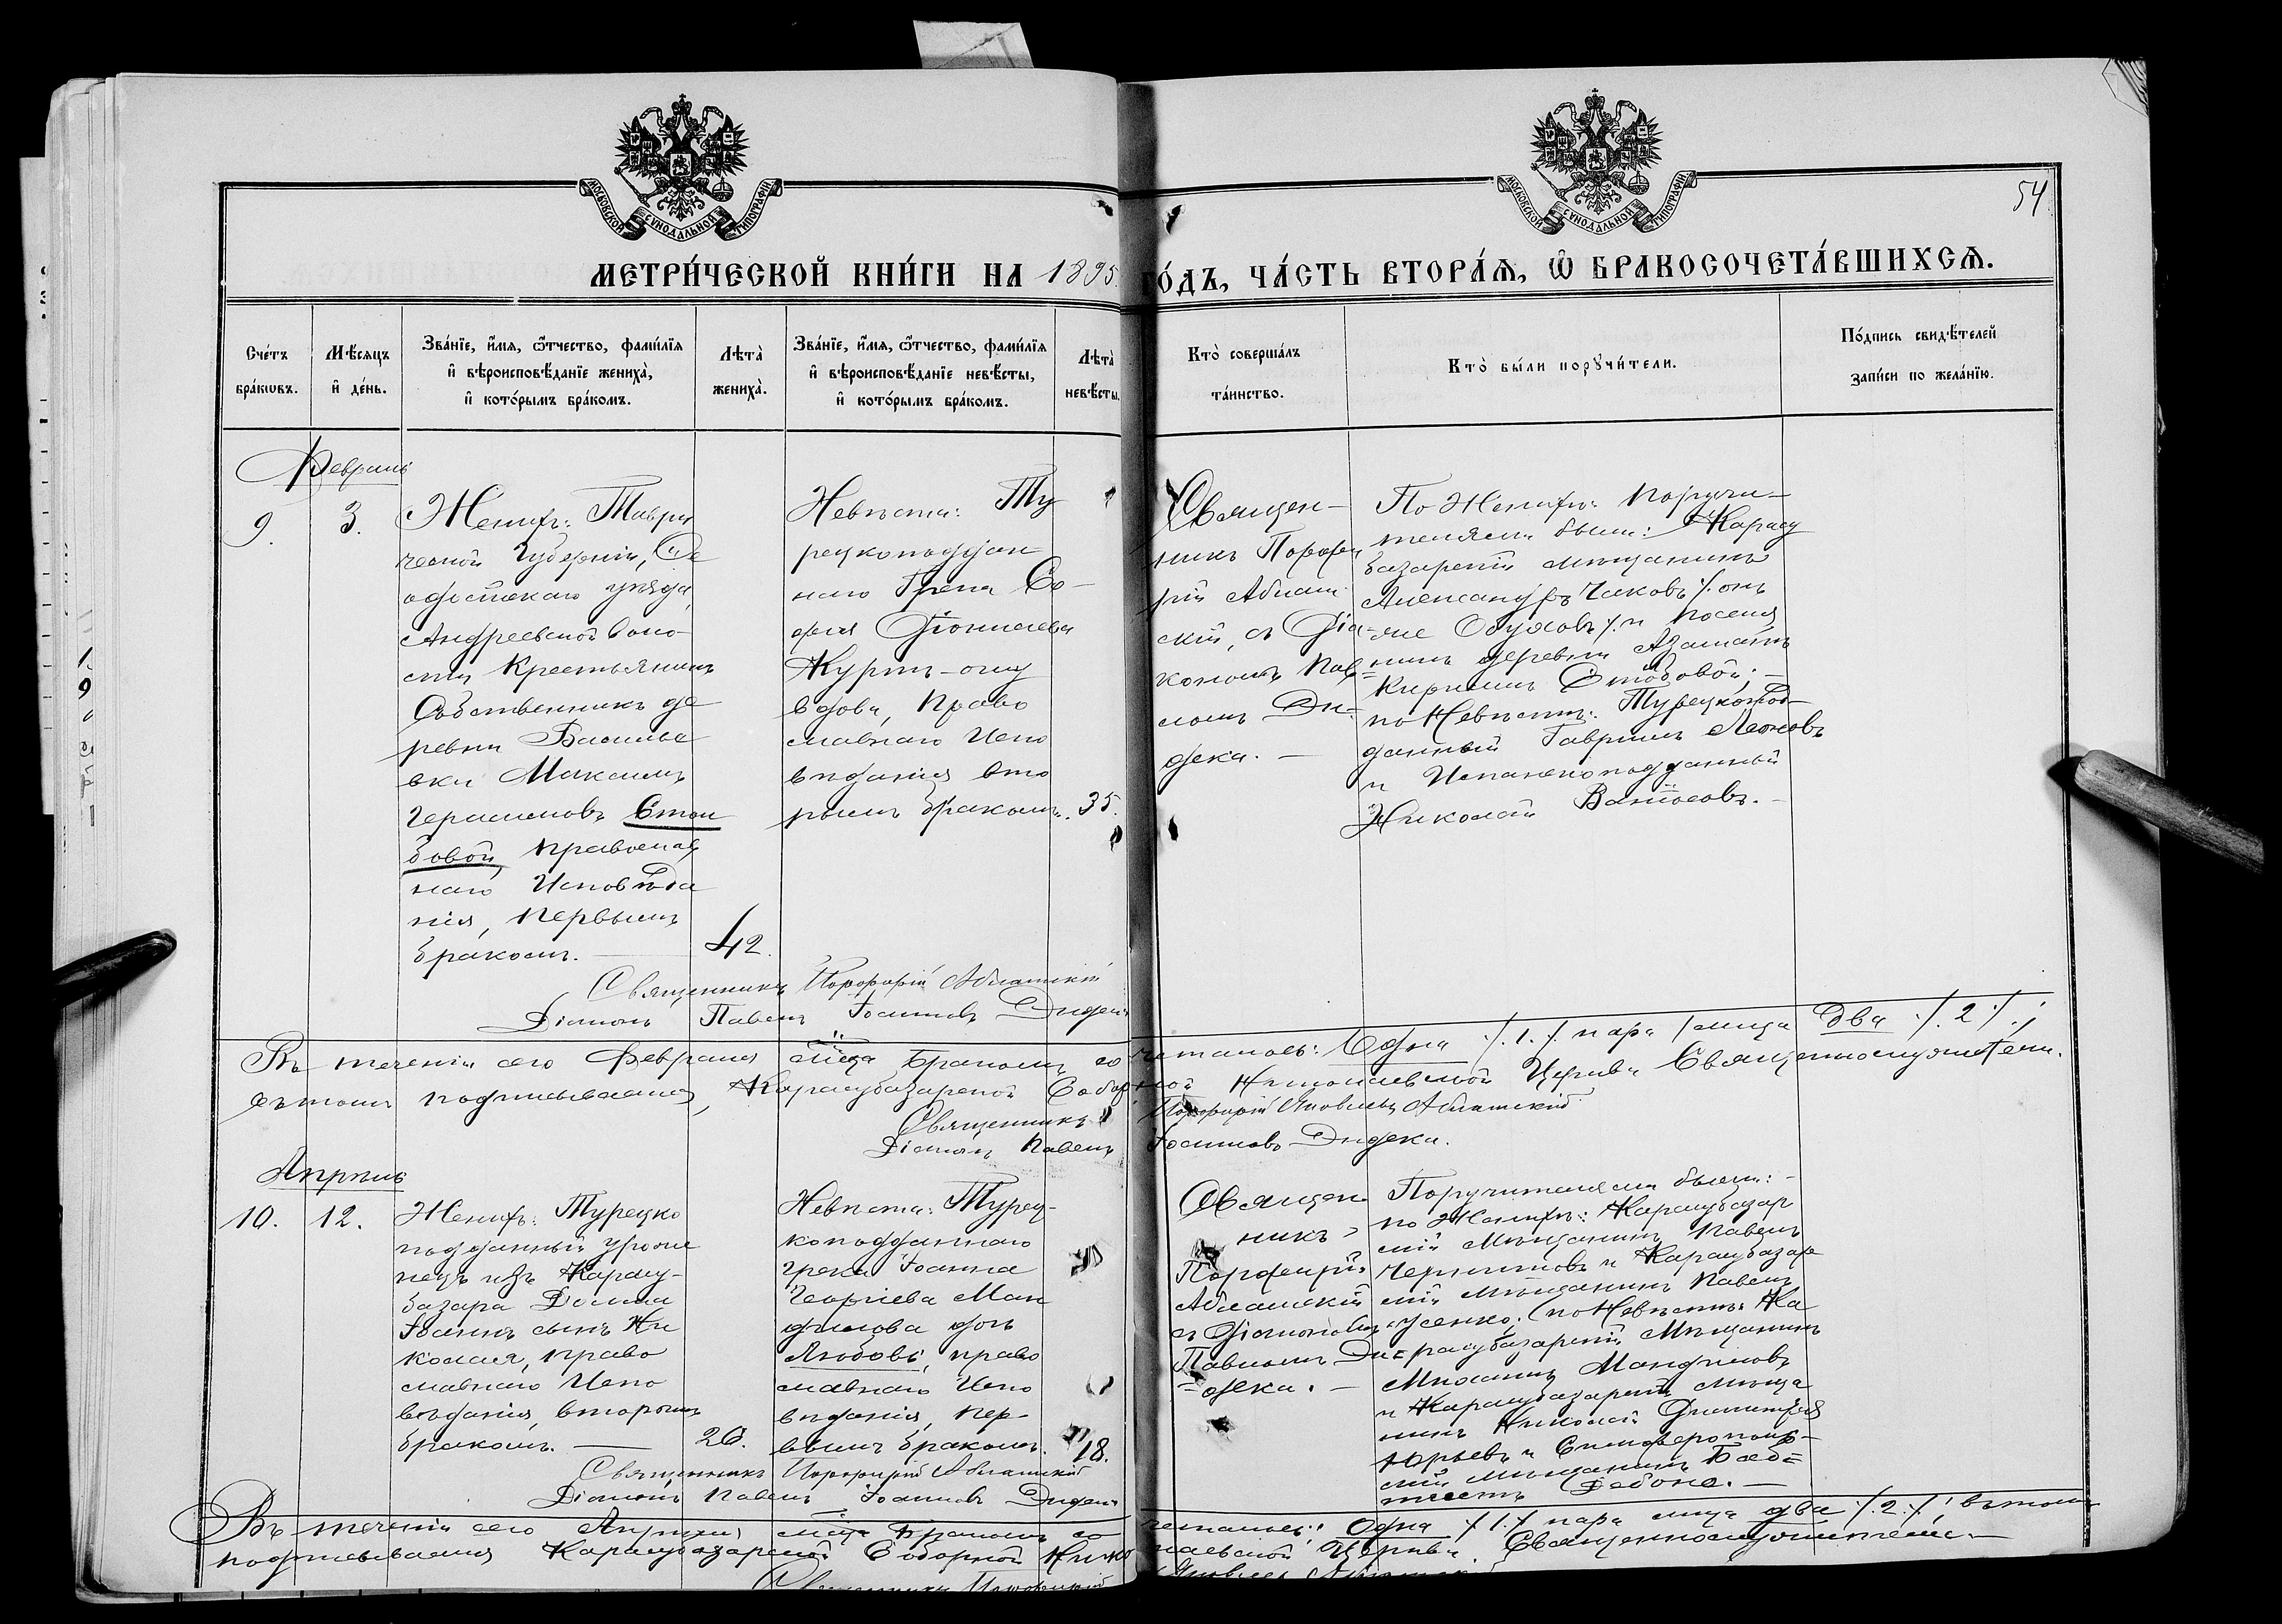 МОСКОВСКОЙ СѴНОДАЛЬНОЙ ТИПОГРАФІИ
МОСКОВСКОЙ СѴНОДАЛЬНОЙ ТИПОГРАФІИ
54
МЕТРИ́ЧЕСКОЙ КНИ́ГИ НА 1895 ГО́ДЪ, ЧА́СТЬ ВТОРА́Я, Ѽ БРАКОСОЧЕТА́ВШИХСЯ.
Сче́тъ
бра́кѡвъ.
Мѣ́сяцъ
и҆ де́нь.
Зва́нїе, и҆́мя, ѻ҆́тчество, фами́лїя
и҆ вѣроисповѣ́данїе жениха̀,
и҆ кото́рымъ бра́комъ.
Лѣта̀
жениха̀.
Зва́нїе, и҆́мя, ѻ҆́тчество, фами́лїя
и҆ вѣроисповѣ́данїе невѣ́сты,
и҆ кото́рымъ бра́комъ.
Лѣта̀
невѣ́сты.
Кто̀ соверша́лъ
та́инство.
Кто̀ бы́ли порꙋчи́тели.
По́дпись свидѣ́телей
за́писи по жела́нїю.
Февраль
9.
3.
Женихъ: Таври
ческой Губерніи, Ѳе
одосійскаго уѣзда,
Андреевской воло-
сти Крестьянинъ
Собственникъ де
ревни Василье
вки Максимъ
Герасимовъ Стол
бовой, православ
наго Исповѣда
нія, первымъ
бракомъ.
42.
Невѣста: Ту
рецкоподдан
наго Грека Со-
фія Діонисіева
Куртъ-оглу
вдова, Право
славнаго Испо
вѣданія вто
рымъ бракомъ.
35.
Священ-
никъ Порфи
рій Аблаш
скій, съ Діа-
кономъ Пав=
ломъ Ди-
дека.
По Женихѣ: Поручи-
телями были: Карасу
базарскій мѣщанинъ
Александръ Чаковъ /. онъ
же Обуховъ ./ и поселя
нинъ деревни Азаматъ
Кириллъ Столбовой; -
по Невѣстѣ: Турецкопод-
данный Гавріилъ Леоновъ
и Испанскоподданный
Николай Ватосовъ. -
Священникъ Порфирій Аблашскій
Діаконъ Павелъ Іоанновъ Дидека
Въ теченіи сего Февраля мѣсяца бракомъ сочеталось: Одна /.1./ пара лица два /.2./;
въ томъ подписываемся, Карасубазарской Соборной Николаевской Церкви Священнослужители.
Священникъ Порфирій Яковлевъ Аблашскій
Діаконъ Павелъ Іоанновъ Дидека.
Апрѣль
10.
12.
Женихъ: Турецко
подданный уроже
нецъ изъ Карасу-
базара
Іоаннъ сынъ Ни
колая, право
славнаго Испо
вѣданія, вторымъ
бракомъ.
26.
Невѣста: Турец-
коподданнаго
грека Іоанна
Георгіева Ман
дилова дочь
Любовь, право
славнаго Испо
вѣданія, пер-
вымъ бракомъ.
18.
Священ
никъ
Порфирій
Аблашскій
съ Діакономъ
Павломъ Ди=
=дека. -
Поручителями были: -
по Женихѣ: Карасубазар
скій Мѣщанинъ Павелъ
и Карасубазар
скій мѣщанинъ Павелъ
по Невѣстѣ: Ка
расубазарскій Мѣщанинъ
Михаилъ Мандиловъ
и Карасубазарскій мѣща
нинъ Николай Димитрій
Юрьевъ и Симферополь-
скій мѣщанинъ
Священникъ Порфирій Аблашскій
Діаконъ Павелъ Іоанновъ Дидека
Въ теченіи сего Апрѣля мѣсяца бракомъ сочеталось: Одна /.1./ пара лица два /.2./; въ томъ
подписываемся Карасубазарской Соборной Николаевской Церкви Священнослужители. -
Священникъ Порфирій Яковлевъ